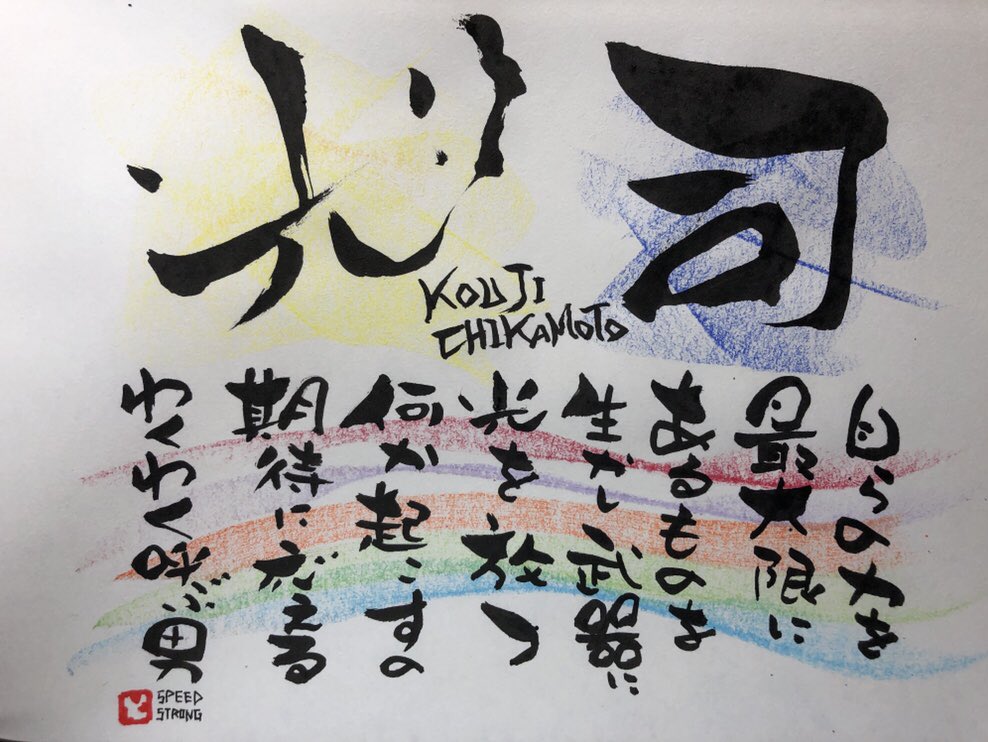 光司
KOUJI
CHIKAMOTO
自らの力を
最大限に
あるものを
生かし武器に
光を放つ
何か起こすの
期待に応える
わくわく呼ぶ男
SPEED
STRONG